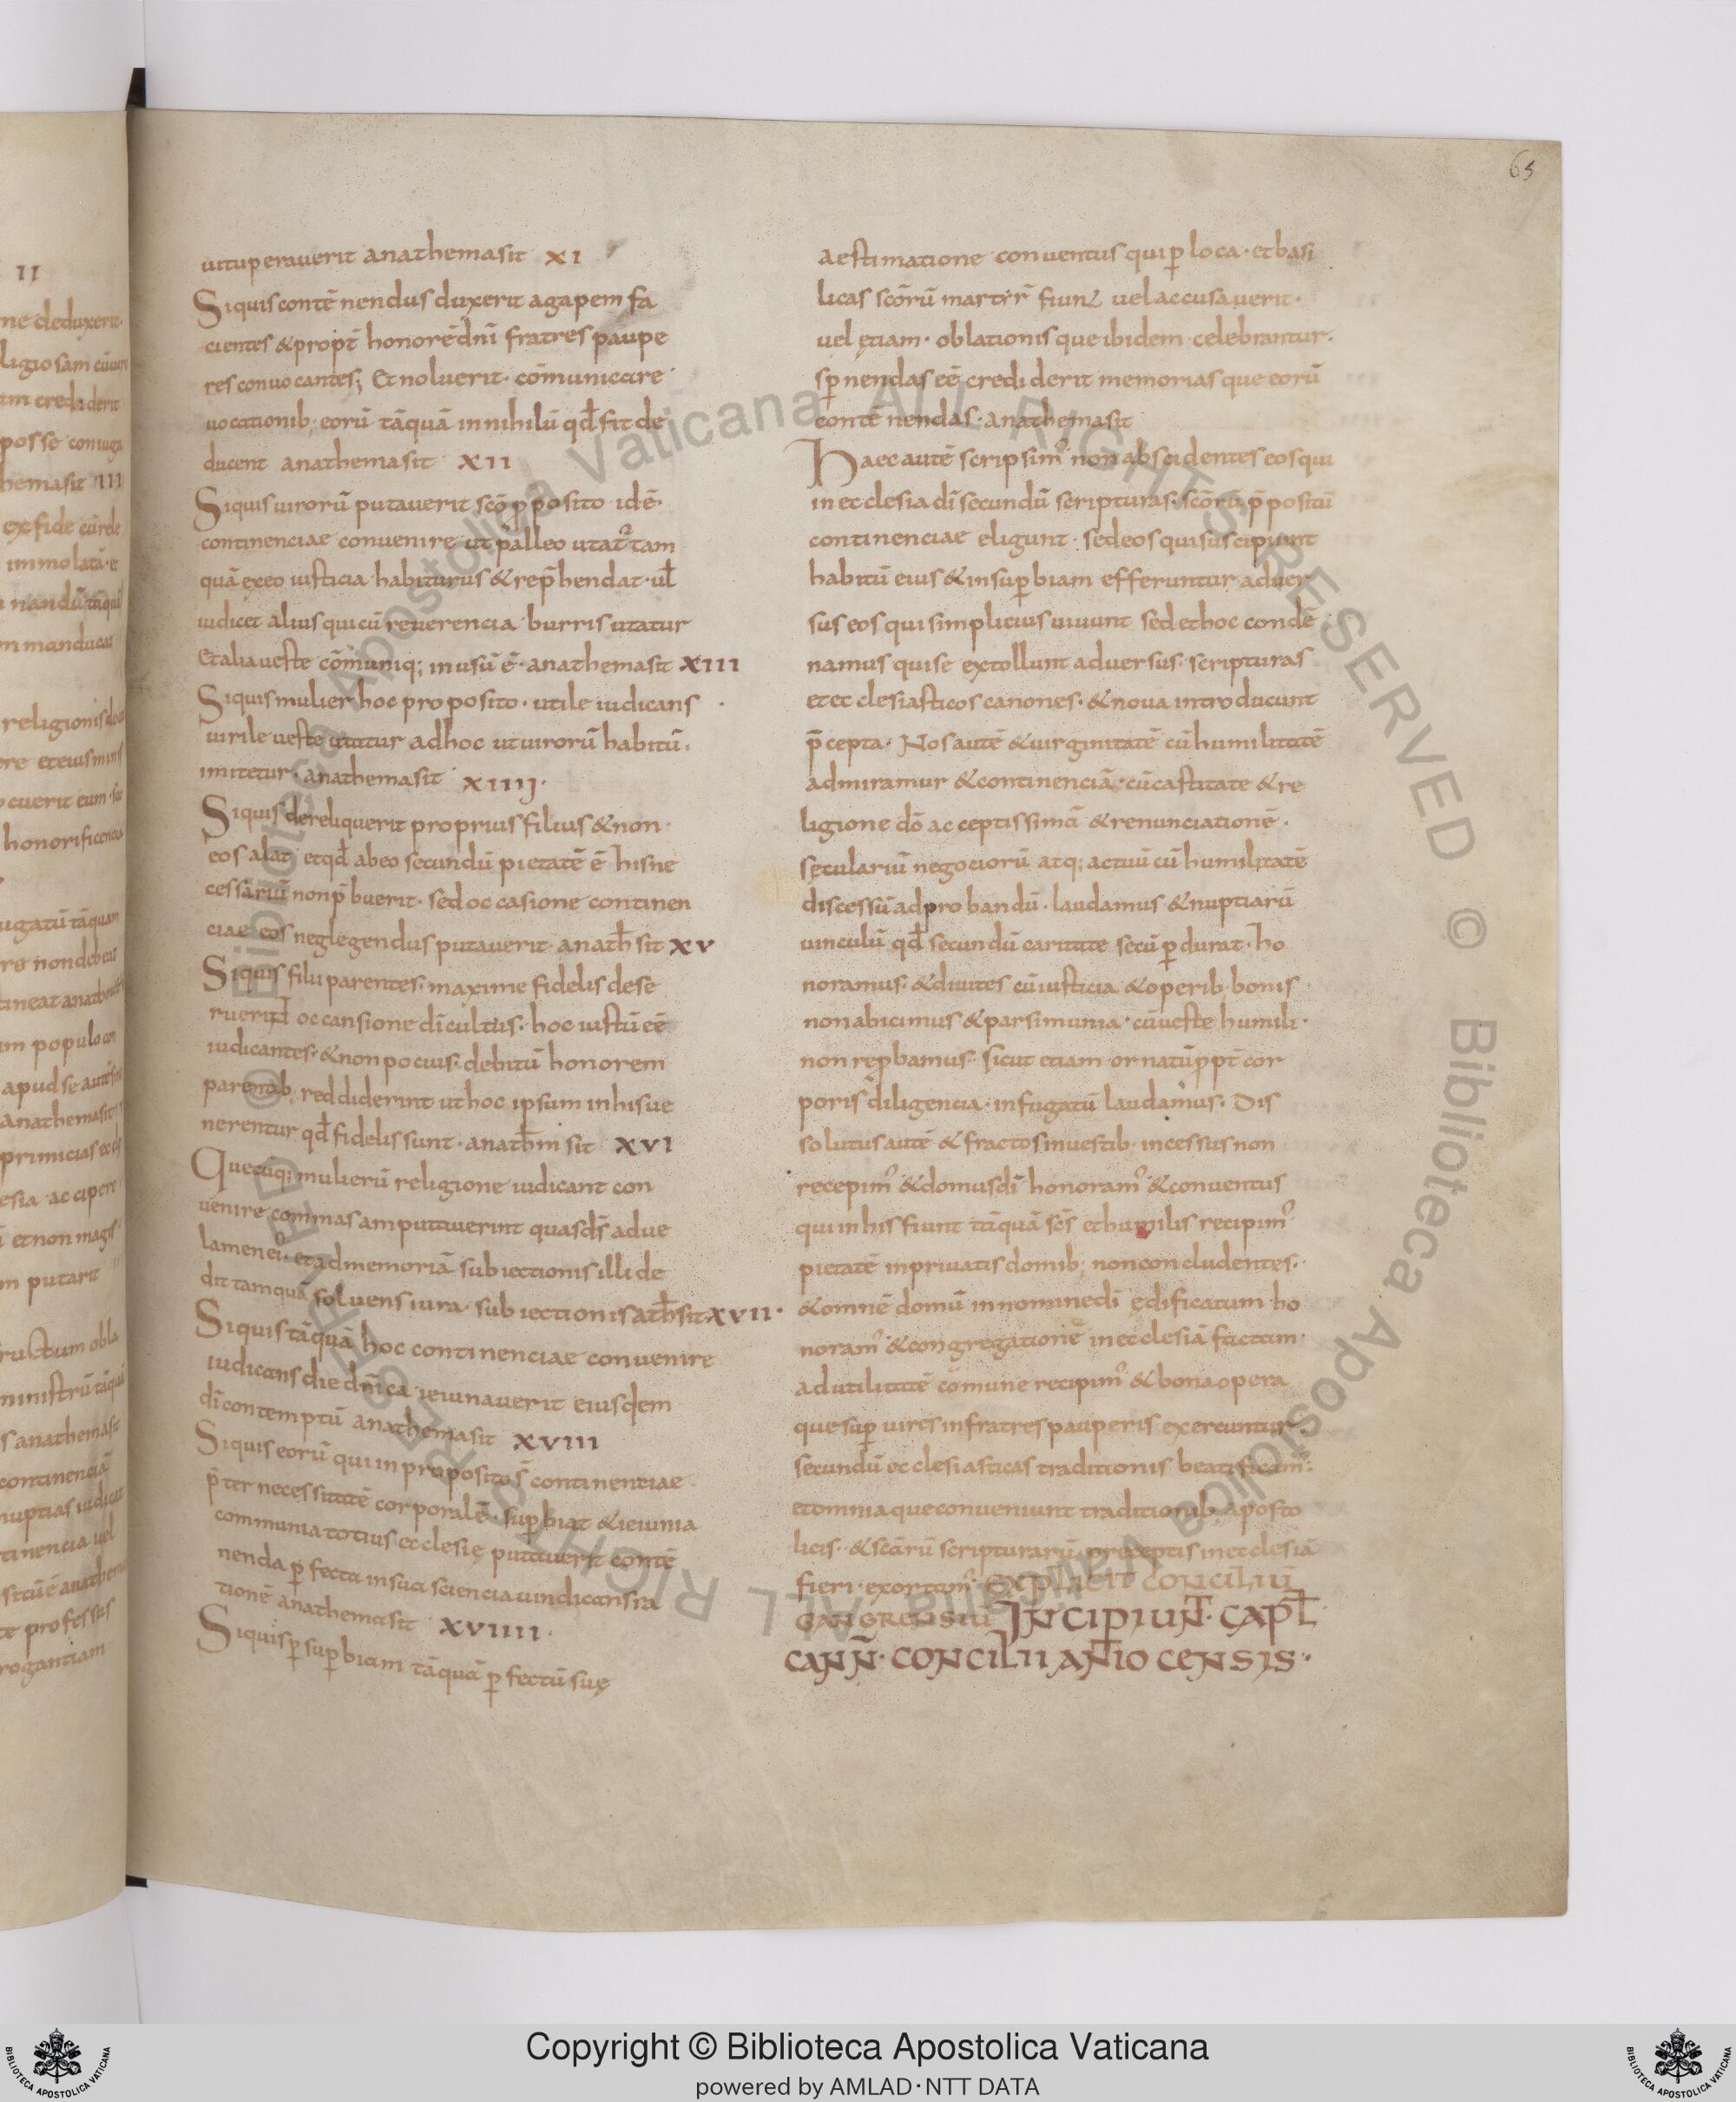 65
uituperauerit anathemasit XI
Siquis contēnendus duxerit agapem fa
cientes & propt̄ honorē dnī fratres paupe
res conuocantes; Et noluerit · cōmunicare
uocationib; eorū tāquā in nihilū qđ fit de
ducent anathemasit XII
Siquis uirorū putauerit scō p̱posito · idē·
continenciae conuenire ut palleo utat᷑ tam
quā exeo iusticia habiturus & rep̄hendat · ul̄
iudicet alius qui cū reuerencia burris utatur
Et alia ueste cōmuniq; in usū ē · anathemasit XIII
Siquis mulier hoc proposito · utile iudicans
uirile ueste utatur adhoc ut uirorū habitū·
imitetur · anathemasit XIIIJ·
Siquis dereliquerit proprius filius & non·
eos alat etqđ abeo secundū pietatē ē hisne
cessariū nonp̄buerit · sed occasione continen
ciae eos neglegendus putauerit · anath̄ sit XV
Siquis filii parentes · maxime fidelis dese
ruerint occansione dī cultus · hoc iustū eē
iudicantes · & non pocius · debitū honorem
parentib; reddiderint ut hoc ipsum in his ue
nerentur qđ fidelis sunt · anath̄m sit XVI
Quecūq; mulierū religione iudicant con
uenire commas amputauerint quas dš adue
lamen eiꝰ · et ad memoriā subiectionis illi de
dit tamquā soluens iura subiectionis ath̄ sit XVII·
Siquis tāquā hoc continenciae conuenire
iudicans die dn̄ica ieiunauerit eiusdem
dī contemptū anathemasit XVIII
Siquis eorū qui in propositos̄ continentiae
p̄ter necessitatē corporalē · sup̱biat & ieiunia
communia totius ecclesię putauerit contē
nenda p̱fecta in sua sciencia uindicans ra
tionē anathemasit XVIIII·
Siquis p̱ sup̱biam tāquā p̱fectū suę
aestimatione conuentus qui p̱ loca · et basi
licas scōrū martir̄ fiunt uel accusauerit·
uel ętiam · oblationis que ibidem celebrantur·
sp̱nendas eē crediderit memorias que eorū
contēnendas · anathemasit
Haec autē scripsimꝰ non abscidentes eos qui
in ecclesia dī secundū scripturas · scōrū p̄positū
continenciae eligunt · sed eos qui suscipiunt
habitū eius & in sup̱biam efferuntur aduer
sus eos qui simplicius uiuunt sed et hoc condē
namus qui se extollunt aduersus · scripturas
et ecclesiasticos canones · & noua introducunt
p̄cepta · Nos autē & uirginitatē cū humilitatē
admiramur & continenciā · cū castitate & re
ligione dō acceptissimā & renunciationē ·
seculariū negociorū atq; actuū cū humilitatē
discessū adprobandū · laudamus & nuptiarū
uinculū qđ secundū caritate secū p̱durat · ho
noramus · & diuites cū iusticia & operib; bonis
non abicimus & parsimunia · cū ueste humili·
non rep̱bamus · sicut etiam ornatū ppt̄ cor
poris diligencia · infugatū laudamus · Dis
solutus autē & fractos in uestib; incessus non
recepimꝰ & domus dī honoramꝰ & conuentus
qui in his fiunt tāquā sc̄s et humilis recipimꝰ
pietatē in priuatis domib; non concludentes·
& omnē domū in nomine dī ędificatum ho
noramꝰ & congregationē in ecclesiā factam·
ad utilitatē cōmune recipimꝰ & bona opera
que sup̱ uires in fratres pauperis exercuntur·
secundū ecclesiasticas traditionis beatificam̄·
et omnia que conueniunt traditionib; aposto
licis · & scārū scripturarū preceptis in ecclesiā
fieri · exortamꝰ EXPLICIT CONCILIŪ
GANGRENSIŪ INCIPIUNT · CAPL̄
CANN̄ · CONCILII ANTIOCENSIS·
Copyright © Biblioteca Apostolica Vaticana
powered by AMLAD·NTT DATA